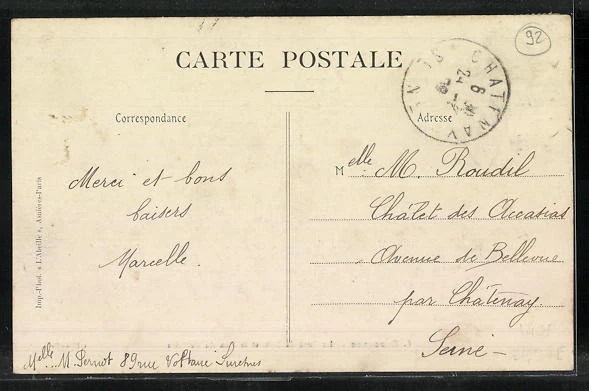 92
CARTE POSTALE
CHATENAY
24
6
Correspondance
Adresse
Merci et bons
baisers
Marcelle.
Melle. M. Roudil
Châlet des Accasias
Avenue de Bellevue
par Châtenay.
Seine -
Imp.-Phot. « L'Abeille », Asnières-Paris
Melle. M. Pernot 89 rue Voltaire Suresnes